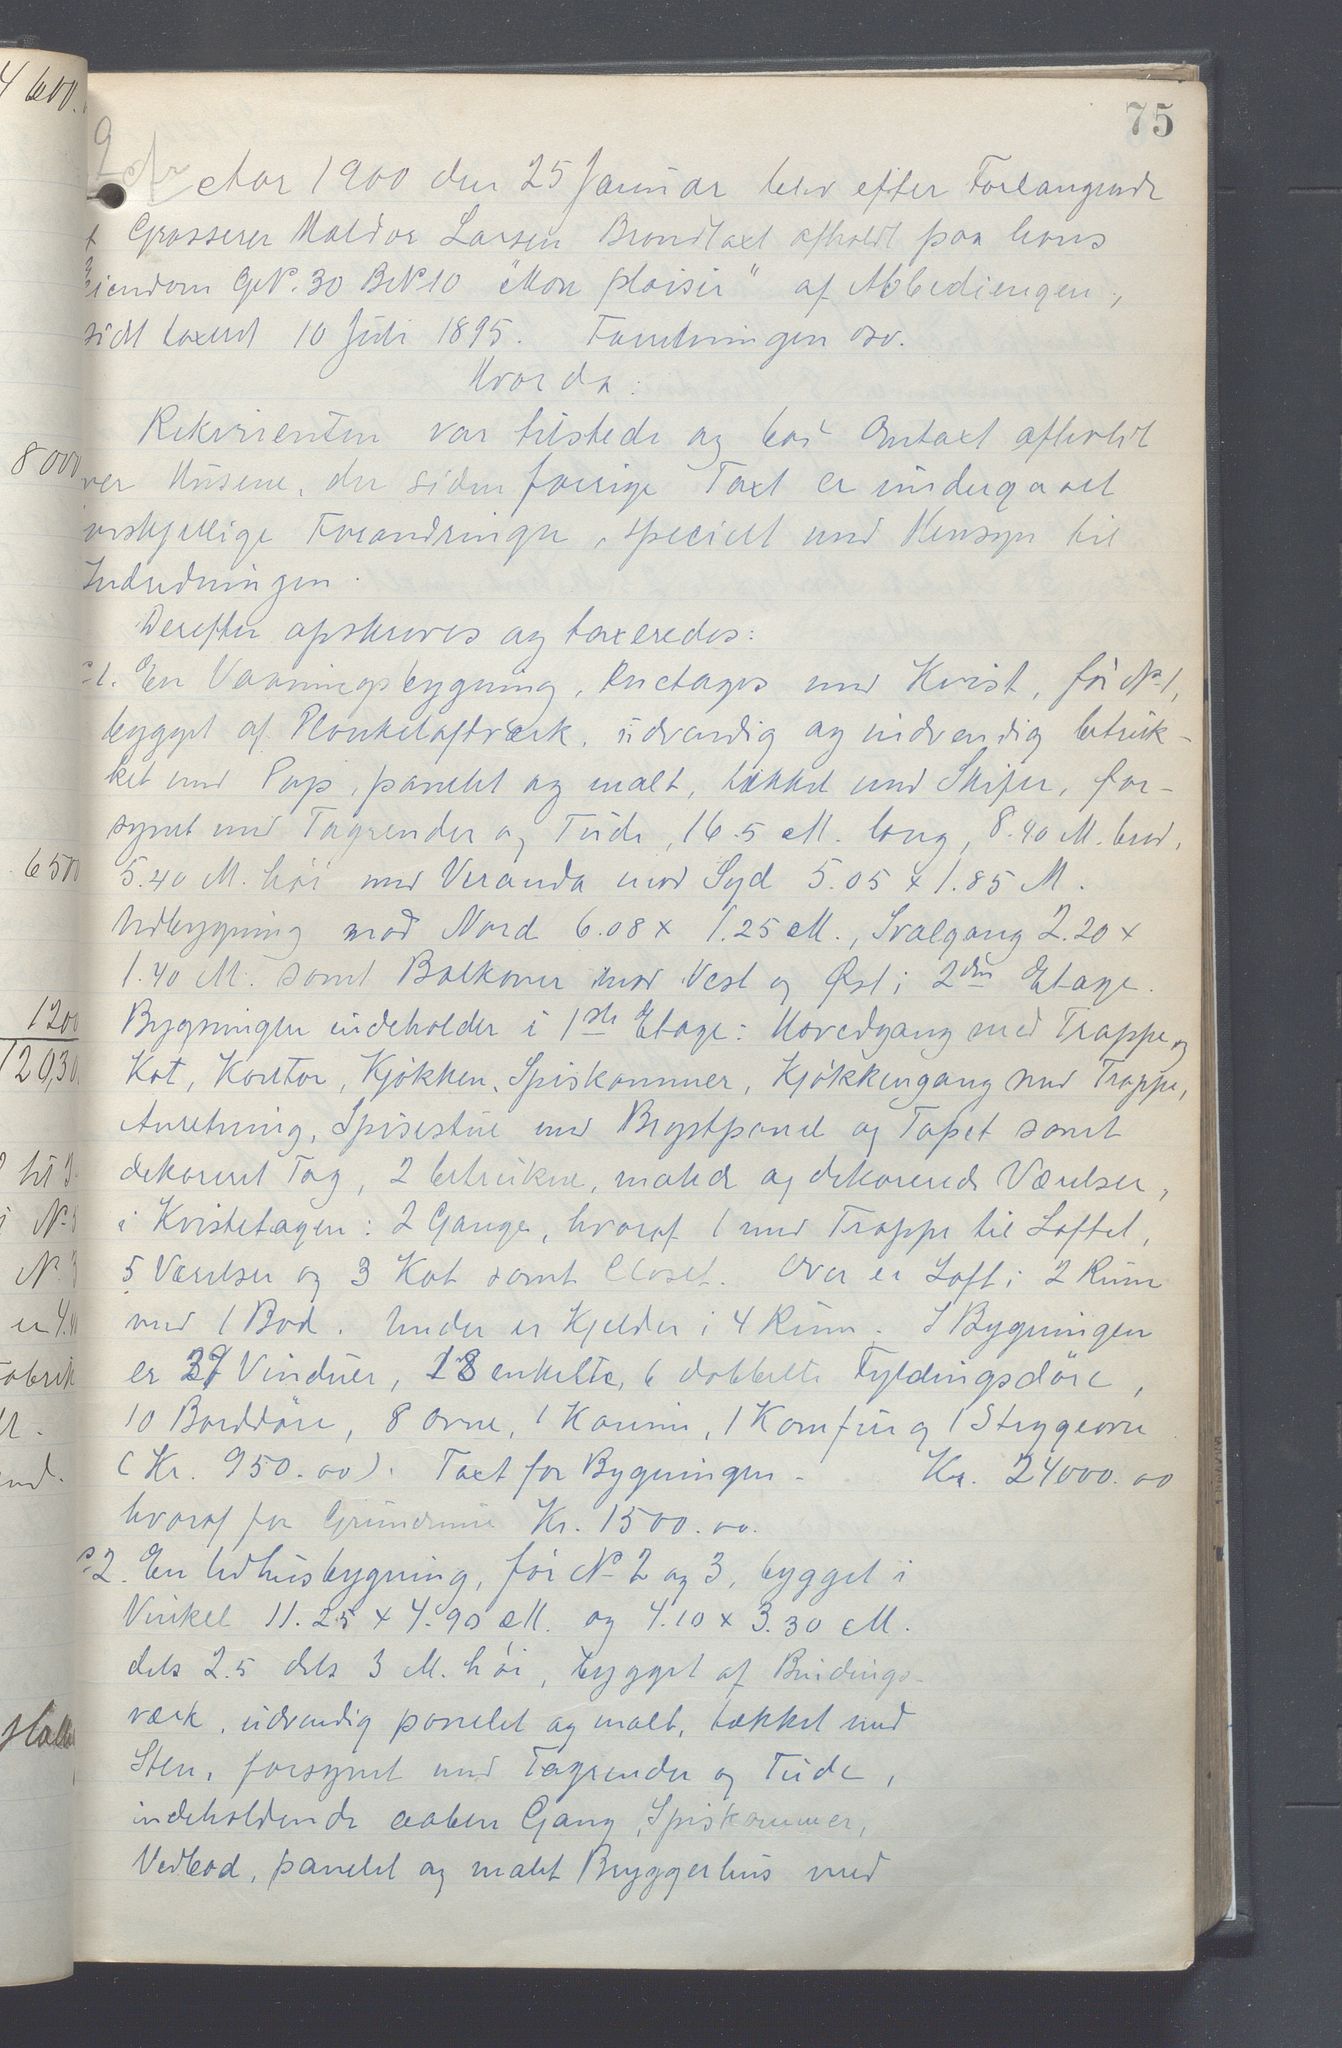 75
Aar 1900 den 25 Januar blev efter Forlangende
Grosserer Haldor Larsen Brandtaxt afholdt paa hans
Eiendom GN. 30 BN 10 "Mon plaisir" af Abbediengen,
sidst taxeret 10 Juli 1895. Forretningen osv.
Hvorda:
Rekvirenten var tilstede og bad Omtaxt afholdt
over Husene, der siden forrige Taxt er undergaaet
forskjellige Forandringer, specielt med Hensyn til
Indredningen.
Derefter opskreves og taxeredes:
1. En Vaaningsbygning, Enetages med Kvist, før No 1,
bygget af Plankelaftværk, udvendig og indvendig betruk-
ket med Pap, panelet og malt, tækket med Skifer, for-
synet med Tagrender og Tude, 16.5 M. lang, 8.40 M. bred,
5.40 M. høi med Veranda mod Syd 5.05 x 1.85 M.
Udbygning mod Nord 6.08 x 1.25 M., Svalgang 2.20 x
1.40 M. samt Balkoner mod Vest og Øst i 2den Etage.
Bygningen indeholder i 1ste Etage: Hovedgang med Trappe og
Kot, Kontor, Kjøkken, Spiskammer, Kjøkkengang med Trappe,
Anretning, Spisestue med Brystpanel og Tapet samt
dekoreret Tag, 2 betrukne, malede og dekorerede Værelser,
i Kvistetagen: 2 Gange, hvoraf 1 med Trappe til Loftet,
5 Værelser og 3 Kot samt Closet. Over er Loft i 2 Rum
med 1 Bod. Under er Kjelder i 4 Rum. I Bygningen
er 37 Vinduer, 18 enkelte, 6 dobbelte Fyldingsdöre,
10 Borddöre, 8 Ovne, 1 Kamin, 1 Komfur og 1 Strygeovn
(Kr. 950.00). Taxt for Bygningen - Kr. 24000.00
hvoraf for Grundmur Kr. 1500.00.
2. En Udhusbygning, før No 2 og 3, bygget i
Vinkel 11.25 x 4.90 M. og 4.10 x 3.30 M.
dels 2.5 dels 3 M. høi, bygget af Bindings-
værk, udvendig panelet og malt, tækket med
Sten, forsynet med Tagrender og Tude,
indeholdende aaben Gang, Spiskammer,
Vedbod, panelet og malet Bryggerhus med